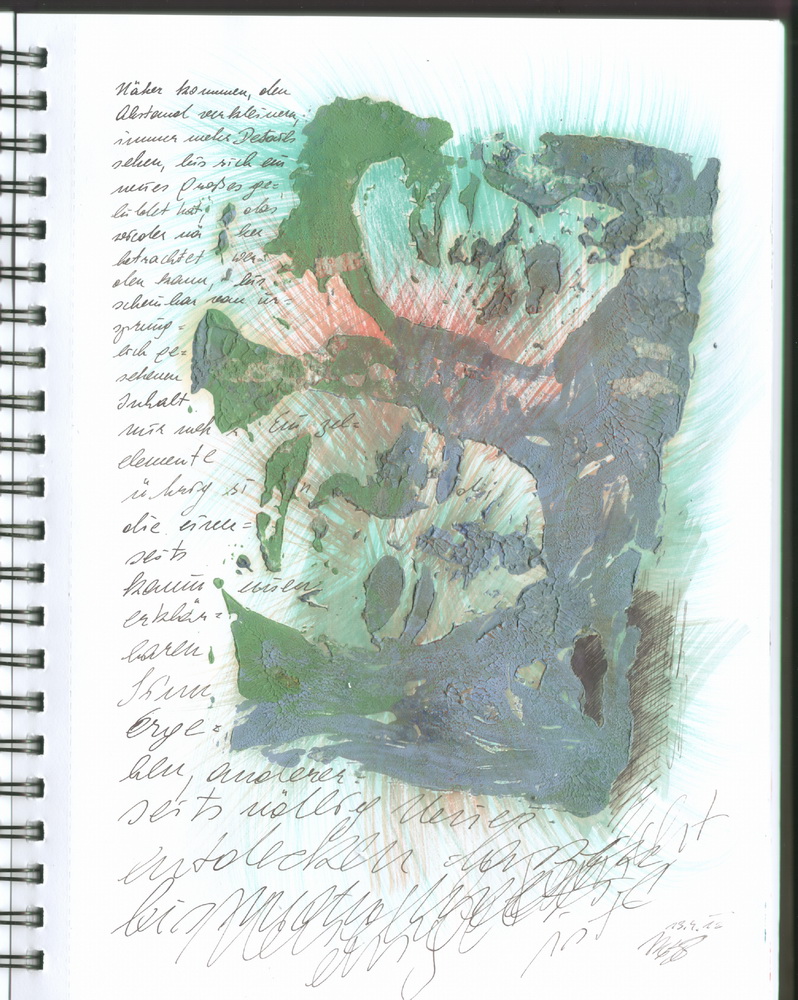 Näher kommen, den
Abstand verkleinern,
immer mehr Details
sehen, bis sich ein
neues Großes ge-
bildet hat, das
wieder nä her
betrachtet wer-
den kann, bis
scheinbar vom ur-
sprüng-
lich ge-
sehenen
Inhalt
nur noch Ein zel-
elemente
übrig si
die einer-
seits
kaum einen
erklär-
baren
Sinn
erge-
ben, anderer-
seits völlig Neues
entdecken
bis
ist
13.4.12